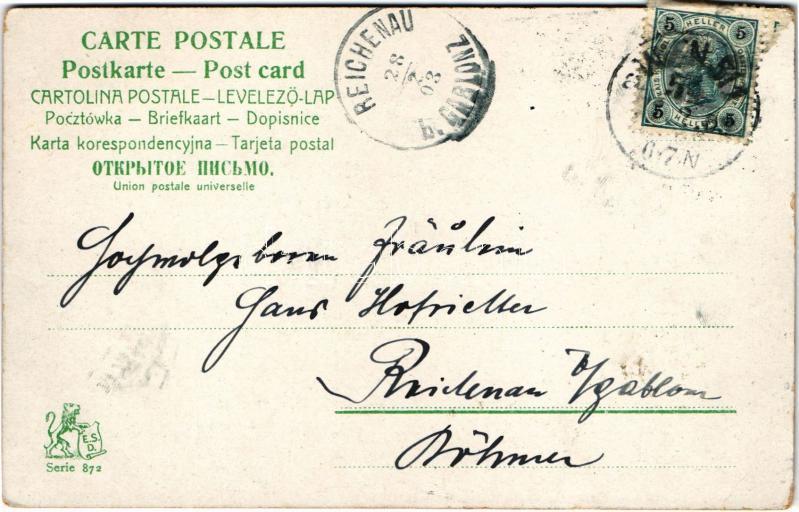 CARTE POSTALE
Postkarte — Post card
CARTOLINA POSTALE – LEVELEZŐ-LAP
Pocztówka – Briefkaart – Dopisnice
Karta korespondencyjna – Tarjeta postal
ОТКРЫТОЕ ПИСЬМО.
Union postale universelle
REICHENAU
b. GABLONZ
28
2
03
5 HELLER 5
5 HELLER 5
6-7 N
Hochwolgeboren Fräulein
Hans Hofrichter
Reichenau b/Gablonz
Böhmen
E.S.
D.
Serie 872